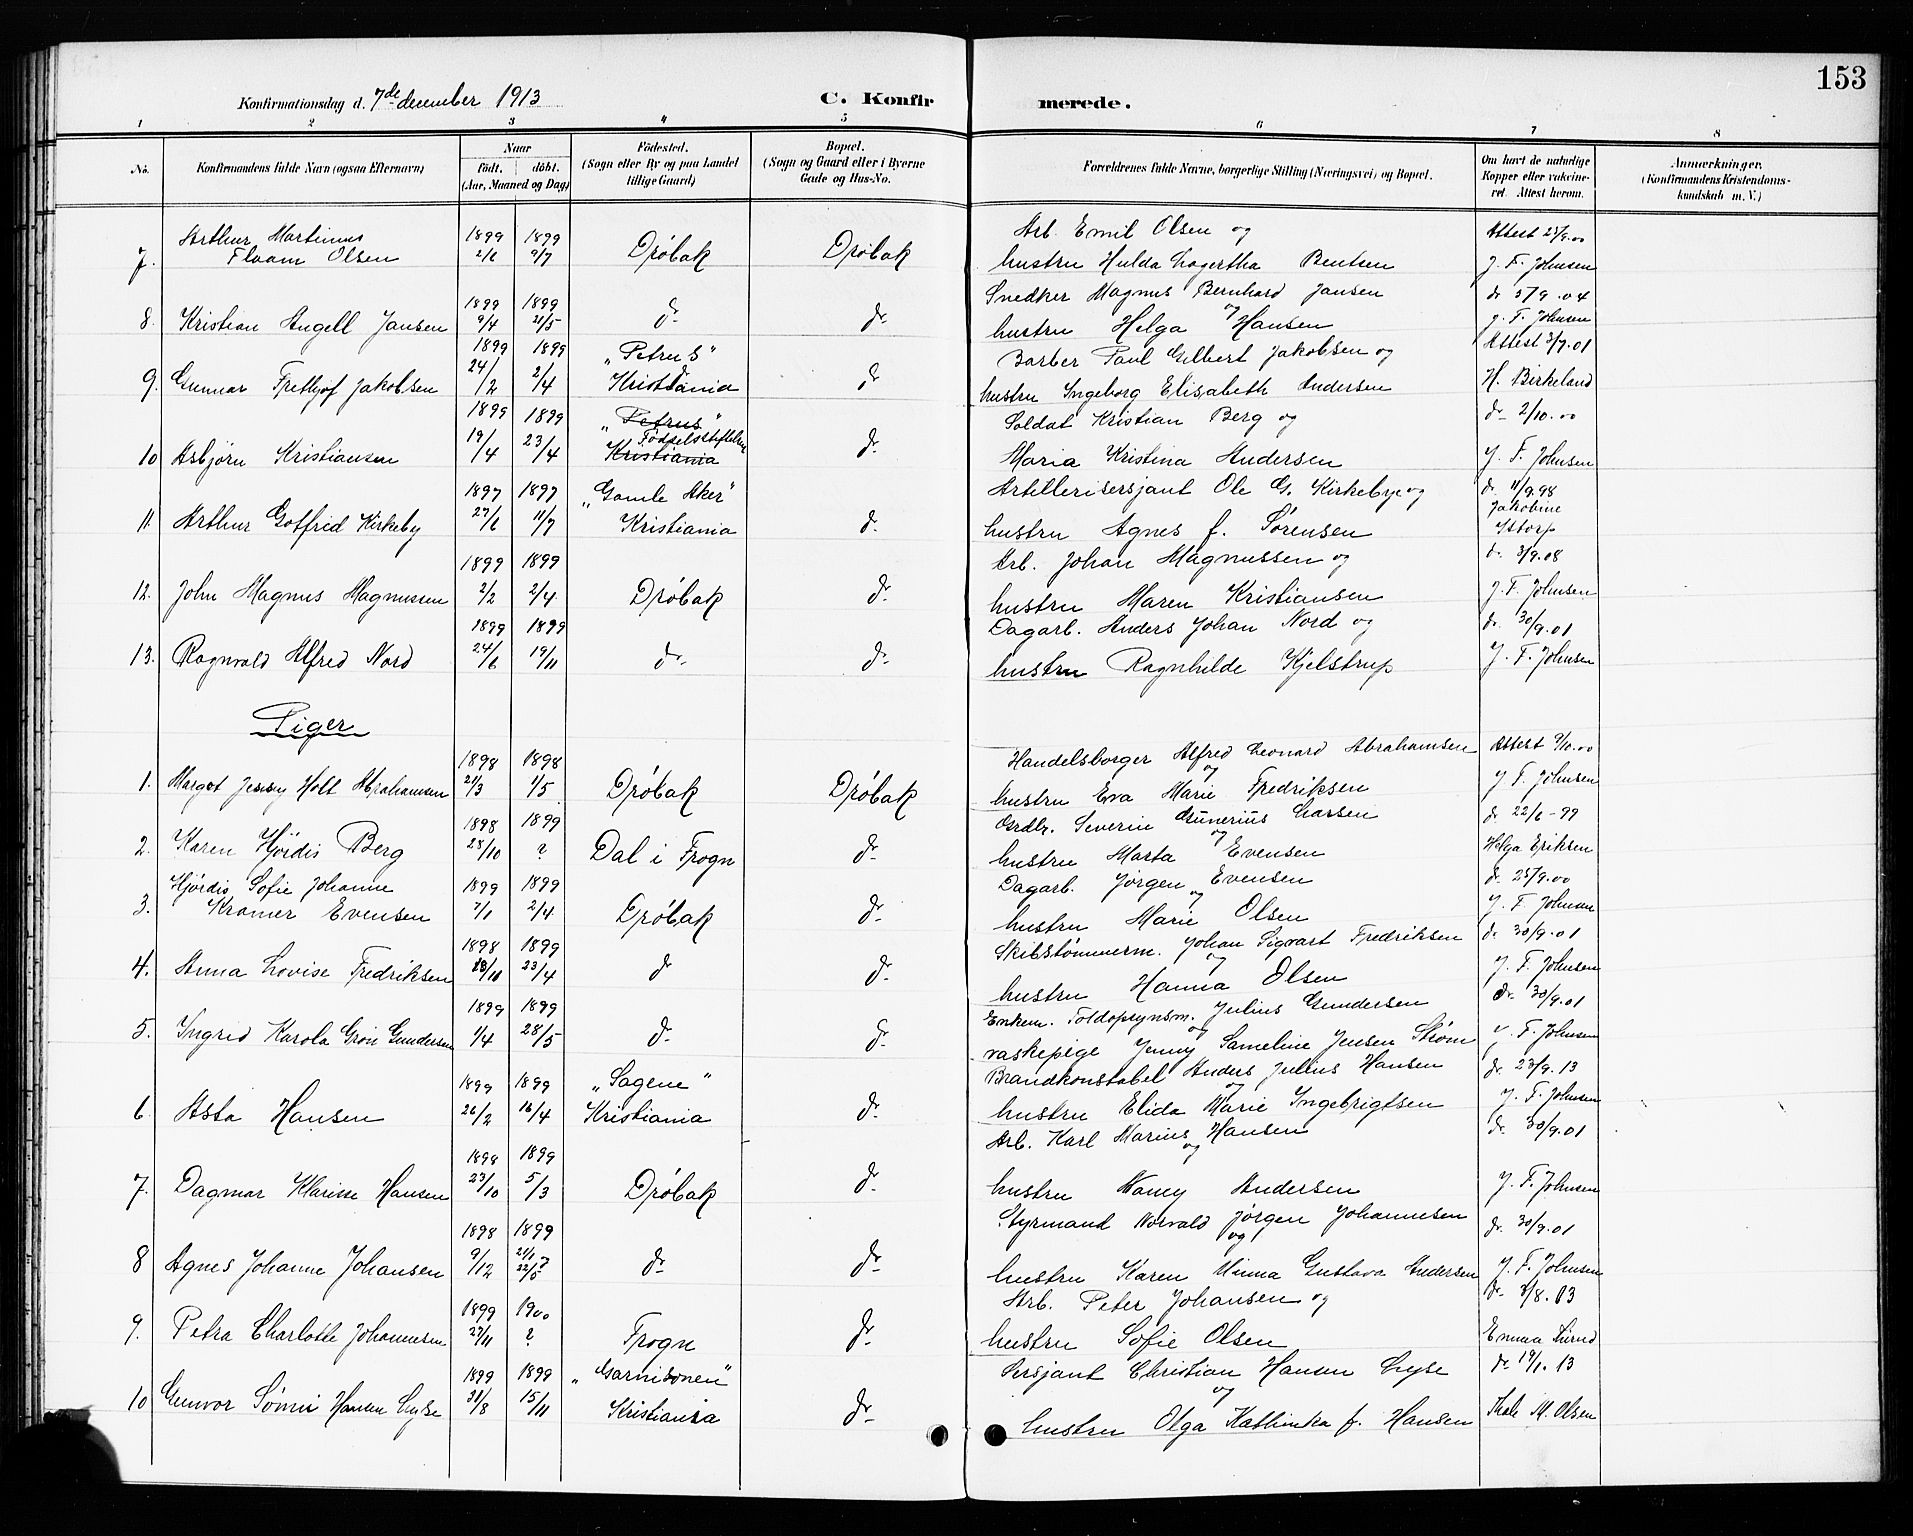 153
Konfirmationsdag d. 7de december 1913 C. Konfirmerede.
1 2 3 4 5 6 7 8
No. Konfirmandens fulde Navn (ogsaa Efternavn) Naar födt. döbt. (Aar, Maaned og Dag) Födested. (Sogn eller By og paa Landet tillige Gaard) Bopæl. (Sogn og Gaard eller i Byerne Gade og Hus-No. Forældrenes fulde Navne, borgerlige Stilling (Næringsvei) og Bopæl. Om havt de naturlige Kopper eller vakcineret. Attest herom. Anmærkninger. (Konfirmandens Kristendomskundskab m. V.)
Arthur Martinus 1899 1899 Arb. Emil Olsen og Attest 27/9.00
7. Flaam Olsen 2/6 9/7 Dröbak Dröbak hustru Hulda Lagertha Bentsen J. F. Johnsen
1899 1899 Snedker Magnus Bernhard Jansen do 5/9.04
8. Kristian Angell Jansen 9/4 21/5 do do og hustru Helga Hansen J. F. Johnsen
1899 1899 "Petrus" Barber Paul Gilbert Jakobsen og Attest 3/9.01
9. Gunnar Frethjof Jakobsen 24/2 2/4 Kristiania do hustru Ingeborg Elisabeth Andersen H. Birkeland
1899 1899 "Petrus" Soldat Kristian Berg og do 2/10.00
10 Asbjörn Kristiansen 19/4 23/4 Födselsstiftelsen Kristiania do Maria Kristina Andersen J. F. Johnsen
1897 1897 "Gamle Aker" Artillerisersjant Ole G. Kirkebye og do 11/9.98
11. Arthur Gotfred Kirkeby 27/6 11/7 Kristiania do hustru Agnes f. Sörensen Jakobine Ystorp
1899 1899 Arb. Johan Magnussen og do 3/9.08
12. John Magnus Magnussen 2/2 2/4 Dröbak do hustru Maren Kristiansen J. F. Johnsen
1899 1899 Dagarb. Anders Johan Nord og do 30/9.01
13. Ragnvald Alfred Nord 24/6 19/11 do do hustru Ragnhilde Kjelstrup J. F. Johnsen
Piger
1898 1898 Handelsborger Alfred Leonard Abrahamsen Attest 2/10.00
1. Margot Jessy Holt Abrahamsen 21/3 1/5 Dröbak Dröbak og hustru Eva Marie Fredriksen J. F. Johnsen
1898 1899 Grdbr. Severin Gunerius Larsen do 22/6-99
2. Karen Hjördis Berg 28/10 ? Dal i Frogn do og hustru Marta Evensen Helga Eriksen
Hjördis Sofie Johanne 1899 1899 Dagarb. Jörgen Evensen do 25/9.00
3. Kramer Evensen 7/1 2/4 Dröbak do og hustru Marie Olsen J. F. Johnsen
1898 1899 Skibstömmerm. Johan Sigvart Fredriksen do 30/9.01
4. Anna Lovise Fredriksen 23/4 do do og hustru Hanna Olsen J. F. Johnsen
1899 1899 Enkem. Toldopsynsm. Julius Gundersen do 30/9.01
5. Yngrid Karola Grön Gundersen 1/4 28/5 do do og vaskepige Jenny Sameline Jensen Ström J. F. Johnsen
1899 1899 "Sagene" Brandkonstabel Anders Julius Hansen do 23/9.13
6 Asta Hansen 26/2 16/4 Kristiania do og hustru Elida Marie Yngebrigtsen J. F. Johnsen
1898 1899 Arb. Karl Marius Hansen do 30/9.01
7. Dagmar Klarisse Hansen 23/10 5/3 Dröbak do og hustru Nancy Andersen J. F. Johnsen
1898 1899 Styrmand Norvald Jörgen Johannesen do 30/9.01
8 Agnes Johanne Johansen 9/12 21/1 ? 22/5 do do og hustru Karen Minna Gustava Andersen J. F. Johnsen
1899 1900 Arb. Peter Johansen og do 3/8.13
9. Petra Charlotte Johannesen 27/11 ? Frogn do hustru Sofie Olsen Emma Lund
1899 1899 "Garnisonen" Sersjant Christian Hansen Lyse do 19/1.13
10 Gunvor Sömi Hansen Lyse 31/8 15/11 Kristiania do og hustru Olga Kathinka f. Hansen Thale M. Olsen